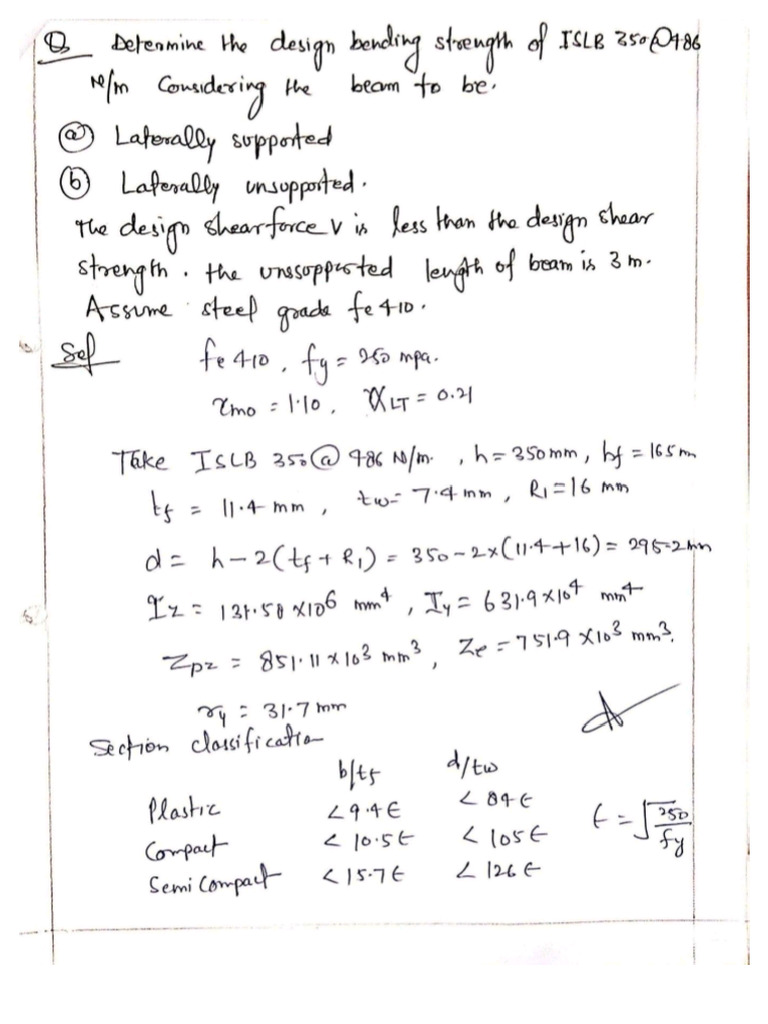 Q Determine the design bending strength of ISLB 350@486
N/m Considering the beam to be.
(a) Laterally supported
(b) Laterally unsupported.
The design shear force V is less than the design shear
strength. the unssupported length of beam is 3 m.
Assume steel grade fe 410.
Sol fe 410, fy = 250 mpa.
γmo = 1.10, αLT = 0.21
Take ISLB 350 @ 486 N/m. , h = 350 mm, bf = 165 m
tf = 11.4 mm, tw = 7.4 mm, R1 = 16 mm
d = h - 2(tf + R1) = 350 - 2×(11.4+16) = 295.2 mm
Iz = 131.58 ×10⁶ mm⁴, Iy = 631.9 ×10⁴ mm⁴
Zpz = 851.11 × 10³ mm³, Ze = 751.9 ×10³ mm³.
ry = 31.7 mm
Section classification
b/tf d/tw
Plastic <9.4 ϵ < 84 ϵ ϵ = √250/fy
Compact < 10.5 ϵ < 105 ϵ
Semi Compact < 15.7 ϵ < 126 ϵ